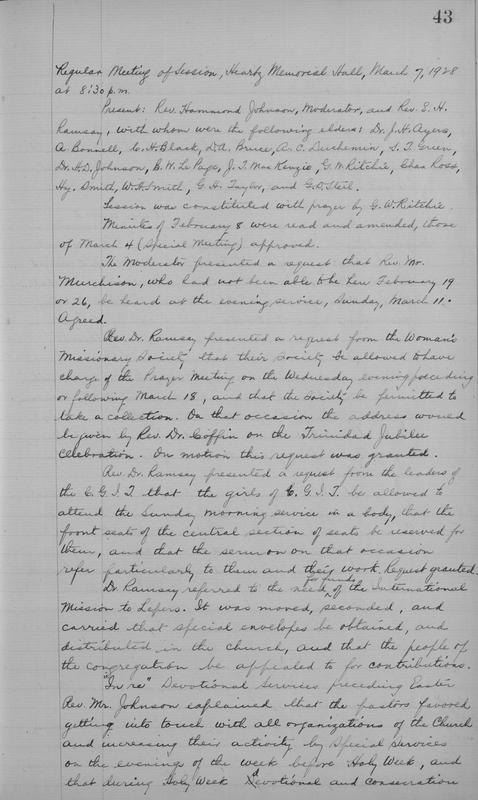 43
Regular Meeting of Session, Heartz Memorial Hall, March 7, 1928
at 8:30 p.m.
Present: Rev. Hammond Johnson, Moderator, and Rev. E. H.
Ramsay, with whom were the following elders: Dr. J. H. Ayers,
A. Bonnell, C. H. Black, D. A. Bruce, A. C. Duchemin, S. T. Green,
Dr. H. D. Johnson, B. W. Le Page, J. T. MacKenzie, G. W. Ritchie, Chas Ross,
Hy. Smith, W. F. Smith, G. H. Taylor, and G. D. Steel.
Session was constituted with prayer by G. W. Ritchie.
Minutes of February 8 were read and amended, those
of March 4 (Special Meeting) approved.
The Moderator presented a request that Rev. Mr.
Murchison, who had not been able to be here February 19
or 26, be heard at the evening service, Sunday, March 11.
Agreed.
Rev. Dr. Ramsay presented a request from the Woman's
Missionary Society that their Society be allowed to have
charge of the Prayer Meeting on the Wednesday evening preceding
or following March 18, and that the Society be permitted to
take a collection. On that occasion the address would
be given by Rev. Dr. Coffin on the Trinidad Jubilee
Celebration. On motion this request was granted.
Rev. Dr. Ramsay presented a request from the leaders of
the C. G. I. T. that the girls of C. G. I. T. be allowed to
attend the Sunday morning service in a body, that the
front seats of the central section of seats be reserved for
them, and that the sermon on that occasion
refer particularly to them and their work. Request granted.
Dr Ramsay referred to the need for funds of the International
Mission to Lepers. It was moved, seconded, and
carried that special envelopes be obtained, and
distributed in the church, and that the people of
the congregation be appealed to for contributions.
"In re" Devotional Services preceding Easter
Rev. Mr. Johnson explained that the pastors favored
getting into touch with all organizations of the Church
and increasing their activity by special services
on the evenings of the week before Holy Week, and
that during Holy Week devotional and consecration